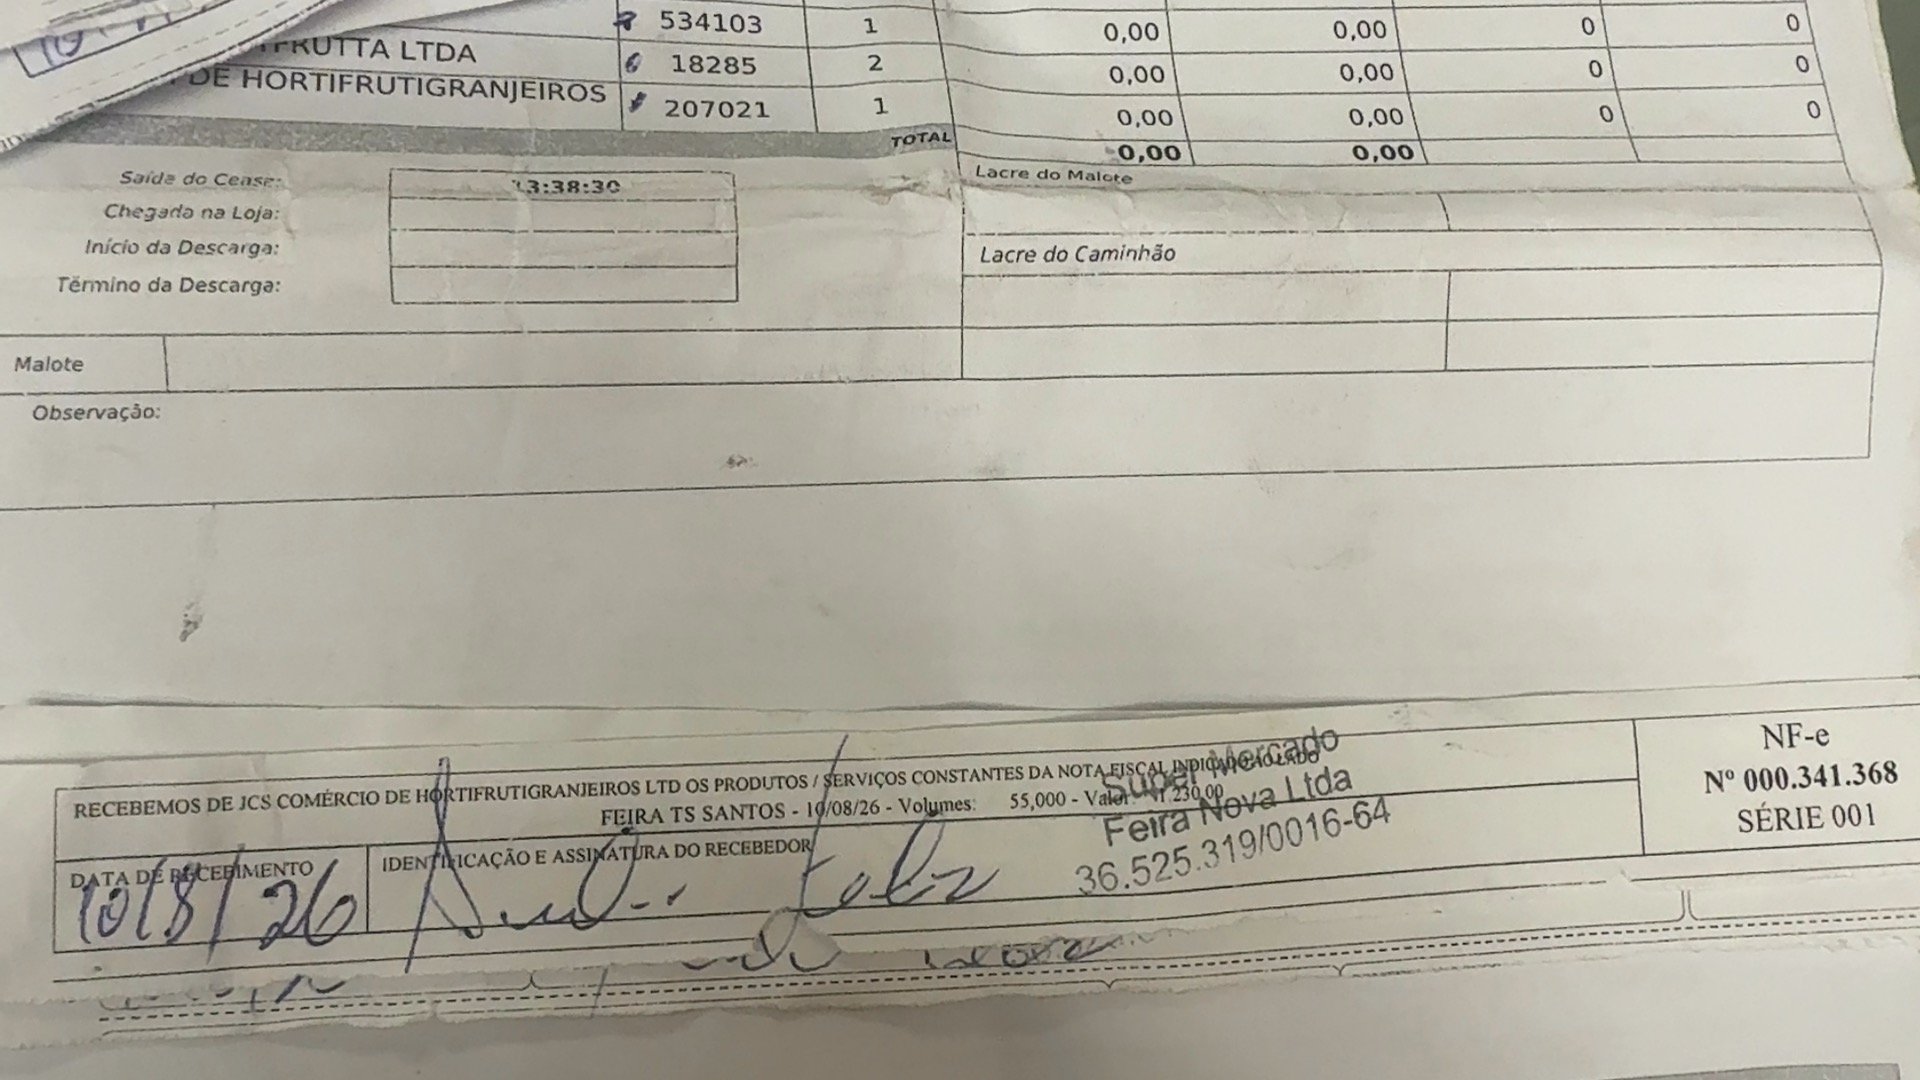 534103 1 0,00 0,00 0 0
FRUTTA LTDA 18285 2 0,00 0,00 0 0
DE HORTIFRUTIGRANJEIROS 207021 1 0,00 0,00 0 0
TOTAL 0,00 0,00
Saída do Cease: 13:38:30
Lacre do Malote
Chegada na Loja:
Início da Descarga:
Lacre do Caminhão
Término da Descarga:
Malote
Observação:
RECEBEMOS DE JCS COMÉRCIO DE HORTIFRUTIGRANJEIROS LTD OS PRODUTOS / SERVIÇOS CONSTANTES DA NOTA FISCAL INDICADO AO LADO
FEIRA TS SANTOS - 10/08/26 - Volumes: 55,000 - Valor: 1.230,00
DATA DE RECEBIMENTO
10/8/26
IDENTIFICAÇÃO E ASSINATURA DO RECEBEDOR
Super Mercado
Feira Nova Ltda
36.525.319/0016-64
NF-e
Nº 000.341.368
SÉRIE 001